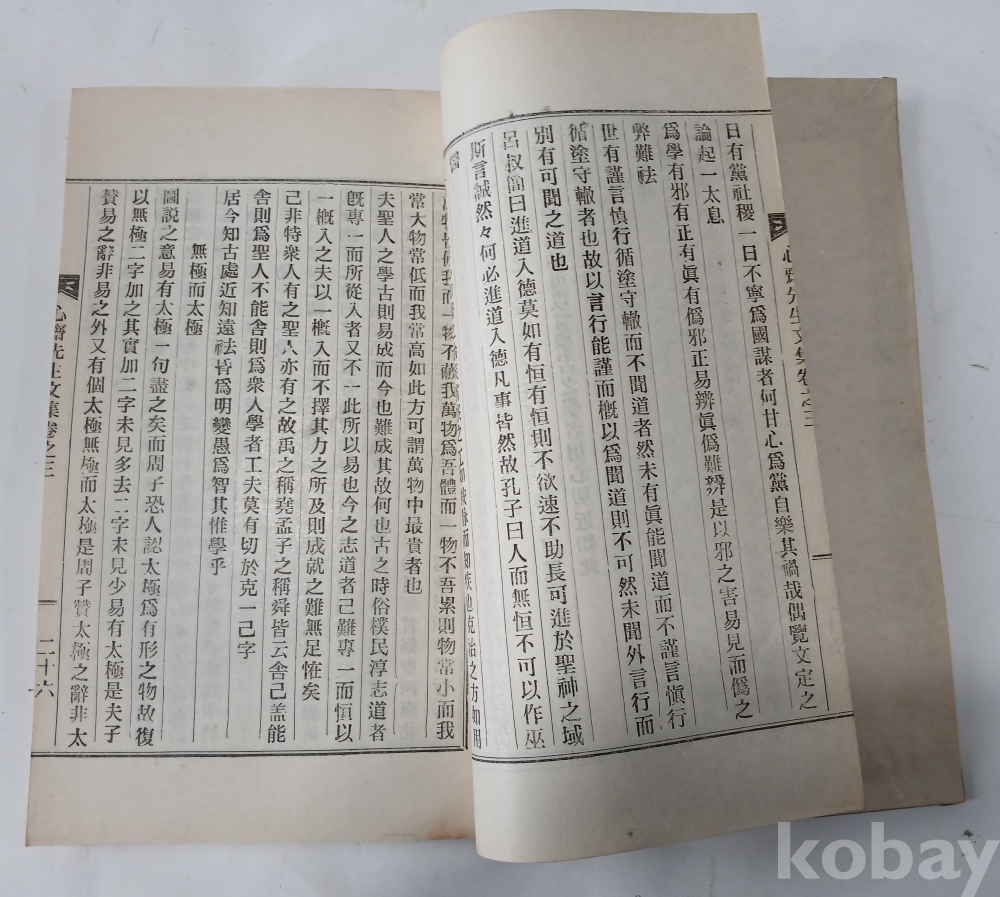 日有黨社稷一日不寧爲國謀者何甘心爲黨自樂其禍哉偶覽文定之
論起一太息
爲學有邪有正有眞有僞邪正易辨眞僞難辨是以邪之害易見而僞之
弊難祛
世有謹言愼行循塗守轍而不聞道者然未有眞能聞道而不謹言愼行
循塗守轍者也故以言行能謹而槪以爲聞道則不可然未聞外言行而
別有可聞之道也
呂叔簡曰進道入德莫如有恒有恒則不欲速不助長可進於聖神之域
斯言誠然々何必進道入德凡事皆然故孔子曰人而無恒不可以作巫
醫
一物不蔽我萬物爲吾體而一物不吾累則物常小而我
常大物常低而我常高如此方可謂萬物中最貴者也
夫聖人之學古則易成而今也難成其故何也古之時俗樸民淳志道者
旣專一而所從入者又不一此所以易也今之志道者己難專一而恒以
一槪入之夫以一槪入而不擇其力之所及則成就之難無足恠矣
己非特衆人有之聖人亦有之故禹之稱堯孟子之稱舜皆云舍己盖能
舍則爲聖人不能舍則爲衆人學者工夫莫有切於克一己字
居今知古處近知遠祛昏爲明變愚爲智其惟學乎
無極而太極
圖説之意易有太極一句盡之矣而周子恐人認太極爲有形之物故復
以無極二字加之其實加二字未見多去二字未見少易有太極是夫子
贊易之辭非易之外又有個太極無極而太極是周子贊太極之辭非太
心齋先生文集卷之三
二十六